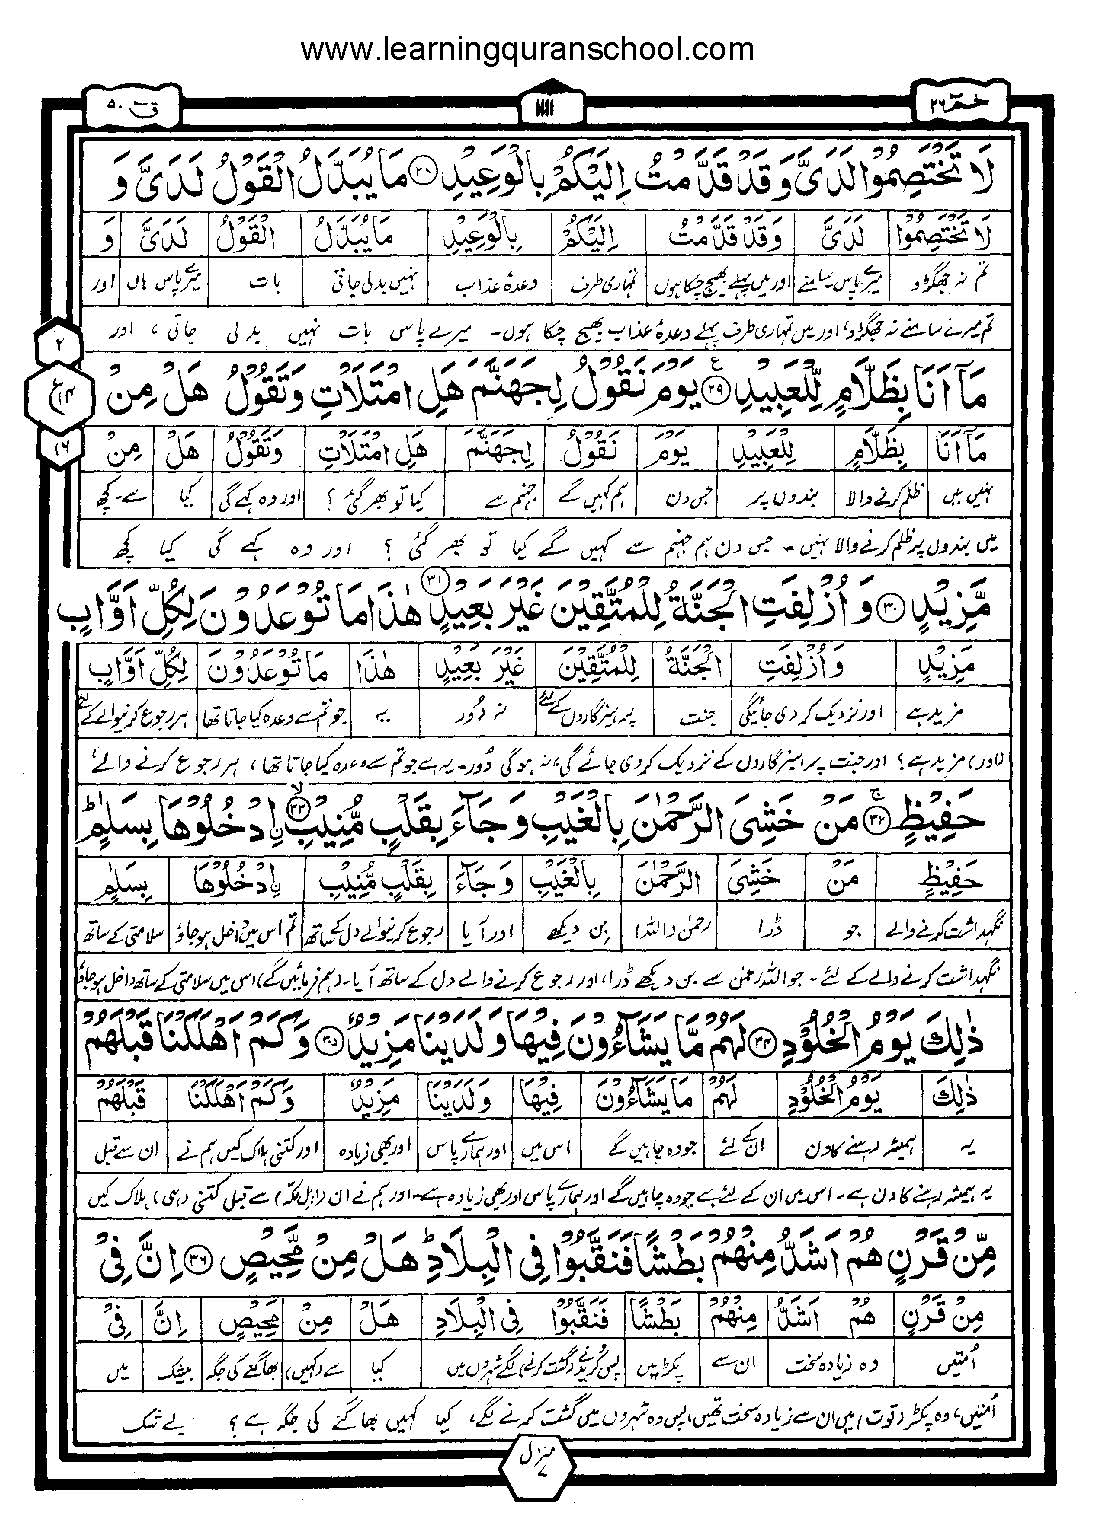 www.learningquranschool.com
حٰمٓ ٢٦
قٓ ٥٠
لَا تَخْتَصِمُوْا لَدَیَّ وَقَدْ قَدَّمْتُ اِلَیْكُمْ بِالْوَعِیْدِ ۝۲۸ مَا یُبَدَّلُ الْقَوْلُ لَدَیَّ وَ
لَا تَخْتَصِمُوْا لَدَیَّ وَقَدْ قَدَّمْتُ اِلَیْكُمْ بِالْوَعِیْدِ مَا یُبَدَّلُ الْقَوْلُ لَدَیَّ وَ
تم نہ جھگڑو میرے پاس سامنے اور میں پہلے بھیج چکا ہوں تمہاری طرف وعدۂ عذاب نہیں بدلی جاتی بات میرے پاس ہاں اور
تم میرے سامنے نہ جھگڑو، اور میں تمہاری طرف پہلے وعدۂ عذاب بھیج چکا ہوں۔ میرے پاس بات نہیں بدلی جاتی، اور
۲
ع
۱۶
مَاۤ اَنَا بِظَلَّامٍ لِّلْعَبِیْدِ ۝۲۹ یَوْمَ نَقُوْلُ لِجَهَنَّمَ هَلِ امْتَلَاْتِ وَتَقُوْلُ هَلْ مِنْ
مَاۤ اَنَا بِظَلَّامٍ لِلْعَبِیْدِ یَوْمَ نَقُوْلُ لِجَهَنَّمَ هَلِ امْتَلَاْتِ وَتَقُوْلُ هَلْ مِنْ
نہیں میں ظلم کرنے والا بندوں پر جس دن ہم کہیں گے جہنم سے کیا تو بھر گئی؟ اور وہ کہے گی کیا سے۔ کچھ
میں بندوں پر ظلم کرنے والا نہیں۔ جس دن ہم جہنم سے کہیں گے کیا تو بھر گئی؟ اور وہ کہے گی کیا کچھ
مَّزِیْدٍ ۝۳۰ وَاُزْلِفَتِ الْجَنَّةُ لِلْمُتَّقِیْنَ غَیْرَ بَعِیْدٍ ۝۳۱ هٰذَا مَا تُوْعَدُوْنَ لِكُلِّ اَوَّابٍ
مَزِیْدٍ وَاُزْلِفَتِ الْجَنَّةُ لِلْمُتَّقِیْنَ غَیْرَ بَعِیْدٍ هٰذَا مَا تُوْعَدُوْنَ لِكُلِّ اَوَّابٍ
مزید ہے اور نزدیک کردی جائیگی جنت پرہیزگاروں کے لئے نہ دور یہ جو تم سے وعدہ کیا جاتا تھا ہر رجوع کرنیوالے کے لئے
(اور) مزید ہے؟ اور جنت پرہیزگاروں کے نزدیک کردی جائے گی، نہ ہوگی دور۔ یہ ہے جو تم سے وعدہ کیا جاتا تھا، ہر رجوع کرنے والے،
حَفِیْظٍ ۝۳۲ مَنْ خَشِیَ الرَّحْمٰنَ بِالْغَیْبِ وَجَآءَ بِقَلْبٍ مُّنِیْبِ ۝۳۳ اِدْخُلُوْهَا بِسَلٰمٍ ط
حَفِیْظٍ مَنْ خَشِیَ الرَّحْمٰنَ بِالْغَیْبِ وَجَآءَ بِقَلْبٍ مُّنِیْبِ اِدْخُلُوْهَا بِسَلٰمٍ
نگہداشت کرنے والے جو ڈرا رحمٰن (اللہ) بن دیکھے اور آیا رجوع کرنیوالے دل کیساتھ تم اس میں داخل ہوجاؤ سلامتی کے ساتھ
نگہداشت کرنے والے کے لئے۔ جو اللہ رحمٰن سے بن دیکھے ڈرا، اور رجوع کرنے والے دل کے ساتھ آیا۔ (ہم فرمائیں گے) اس میں سلامتی کے ساتھ داخل ہوجاؤ
ذٰلِكَ یَوْمُ الْخُلُوْدِ ۝۳۴ لَهُمْ مَّا یَشَآءُوْنَ فِیْهَا وَلَدَیْنَا مَزِیْدٌ ۝۳۵ وَكَمْ اَهْلَكْنَا قَبْلَهُمْ
ذٰلِكَ یَوْمُ الْخُلُوْدِ لَهُمْ مَا یَشَآءُوْنَ فِیْهَا وَلَدَیْنَا مَزِیْدٌ وَكَمْ اَهْلَكْنَا قَبْلَهُمْ
یہ ہمیشہ رہنے کا دن ان کے لئے جو وہ چاہیں گے اس میں اور ہمارے پاس اور بھی زیادہ اور کتنی ہلاک کیں ہم نے ان سے قبل
یہ ہمیشہ رہنے کا دن ہے۔ اس میں ان کے لئے ہے جو وہ چاہیں گے اور ہمارے پاس اور بھی زیادہ ہے۔ اور ہم نے ان (اہل مکہ) سے قبل کتنی (ہی) ہلاک کیں
مِّنْ قَرْنٍ هُمْ اَشَدُّ مِنْهُمْ بَطْشًا فَنَقَّبُوْا فِی الْبِلَادِ ط هَلْ مِنْ مَّحِیْصٍ ۝۳۶ اِنَّ فِیْ
مِنْ قَرْنٍ هُمْ اَشَدُّ مِنْهُمْ بَطْشًا فَنَقَّبُوْا فِی الْبِلَادِ هَلْ مِنْ مَحِیْصٍ اِنَّ فِیْ
اُمتیں وہ زیادہ سخت ان سے پکڑ میں پس کریدنے (گشت کرنے) لگے شہروں میں کیا سے (کہیں) بھاگنے کی جگہ بیشک میں
اُمتیں، وہ پکڑ (قوت) میں ان سے زیادہ سخت تھیں، پس وہ شہروں میں گشت کرنے لگے، کیا کہیں بھاگنے کی جگہ ہے؟ بے شک
منزل ۷